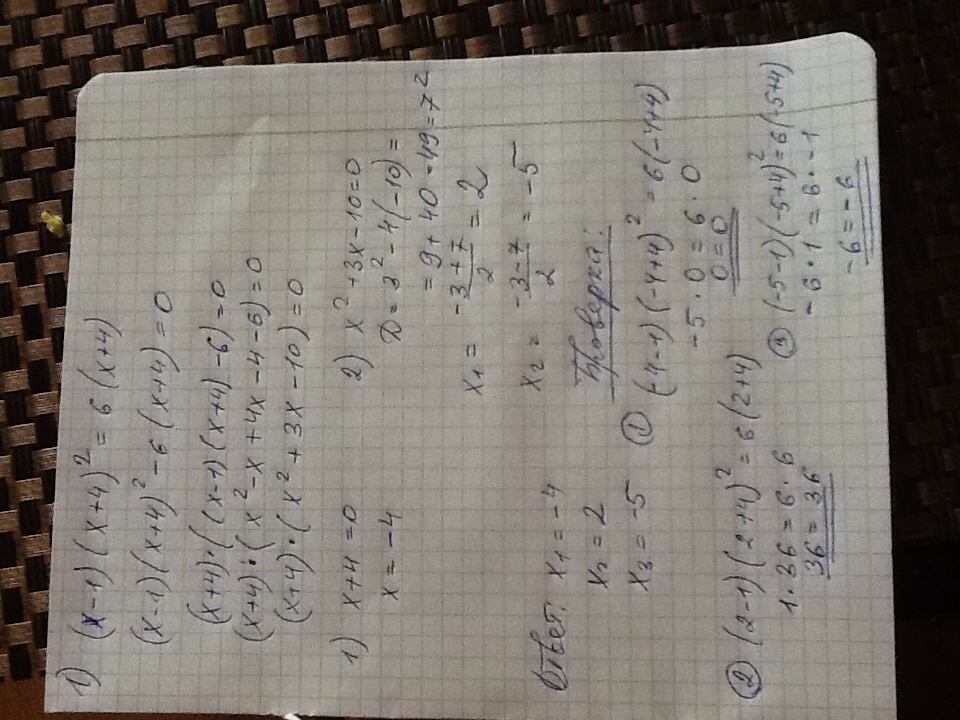 1) (x-1)(x+4)² = 6(x+4)
(x-1)(x+4)² - 6(x+4) = 0
(x+4)·((x-1)(x+4)-6)=0
(x+4)·(x²-x+4x-4-6)=0
(x+4)·(x²+3x-10)=0
1) x+4=0
x=-4
2) x²+3x-10=0
D=3²-4(-10)=
=9+40=49=7²
x₁ = -3+7/2 = 2
x₂ = -3-7/2 = -5
Ответ: x₁=-4
x₂=2
x₃=-5
Проверка:
① (-4-1)(-4+4)² = 6(-4+4)
-5·0=6·0
0=0
② (2-1)(2+4)²=6(2+4)
1·36=6·6
36=36
③ (-5-1)(-5+4)²=6(-5+4)
-6·1=6·-1
-6=-6